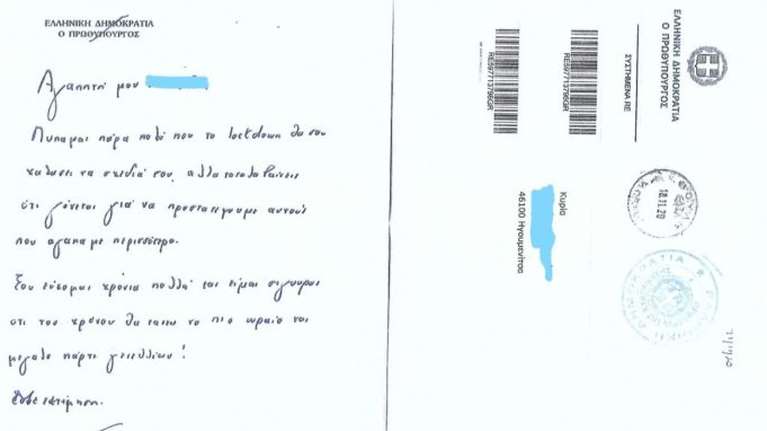 ΕΛΛΗΝΙΚΗ ΔΗΜΟΚΡΑΤΙΑ
Ο ΠΡΩΘΥΠΟΥΡΓΟΣ
Αγαπητή μου
Λυπαμαι πάρα πολύ που το lockdown θα σου
χαλασει τα σχεδιά σου, αλλα καταλαβαίνεις
ότι γίνεται γιά να προστατεψουμε αυτούς
που αγαπαμε περισσότερο.
Σου εύχομαι χρόνια πολλά και είμαι σίγουρος
οτι του χρόνου θα κανεις το πιο ωραίο και
μεγαλο πάρτι γενεθλίων!
ΕΛΛΗΝΙΚΗ ΔΗΜΟΚΡΑΤΙΑ
Ο ΠΡΩΘΥΠΟΥΡΓΟΣ
ΣΥΣΤΗΜΕΝΑ RE
RE597713796GR
RE597713796GR
Κυρία
46100 Ηγουμενίτσα
18.11.20